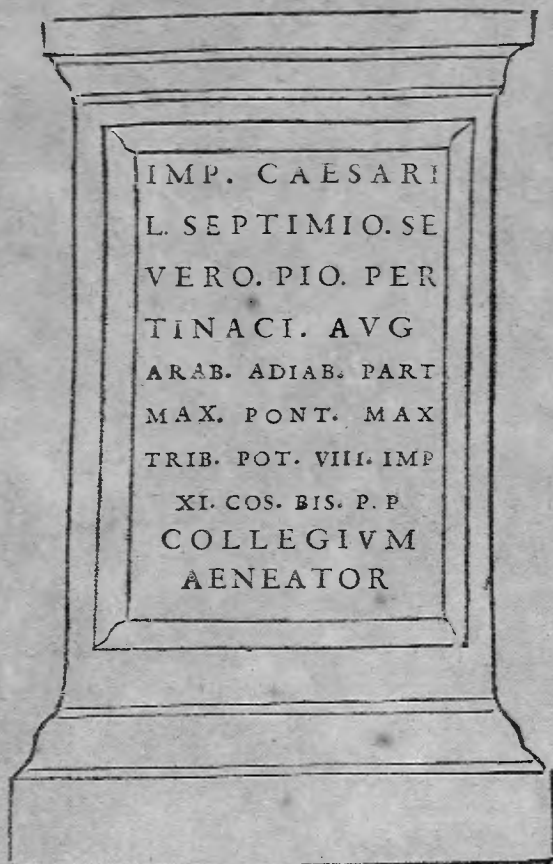 IMP. CAESARI
L. SEPTIMIO. SE
VERO. PIO. PER
TINACI. AVG
ARAB. ADIAB. PART
MAX. PONT. MAX
TRIB. POT. VIII. IMP
XI. COS. BIS. P. P
COLLEGIVM
AENEATOR